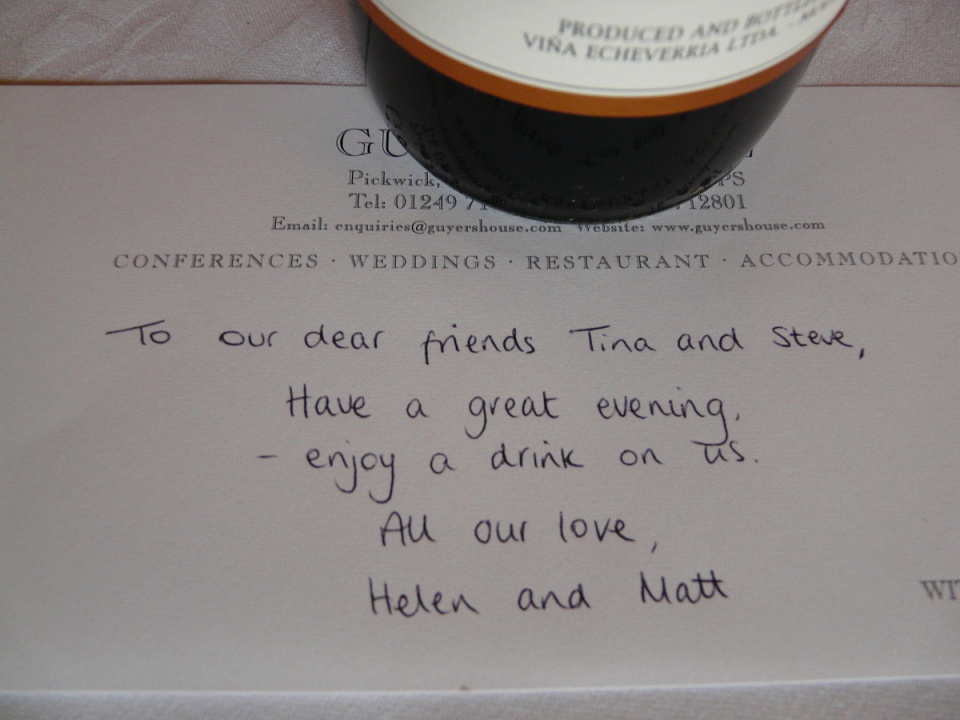 PRODUCED AND BOTTLED
VIÑA ECHEVERRIA LTDA.
GU
Pickwick, PS
Tel: 01249 71 712801
Email: enquiries@guyershouse.com Website: www.guyershouse.com
CONFERENCES · WEDDINGS · RESTAURANT · ACCOMMODATIO
To our dear friends Tina and Steve,
Have a great evening,
- enjoy a drink on us.
All our love,
Helen and Matt
WIT